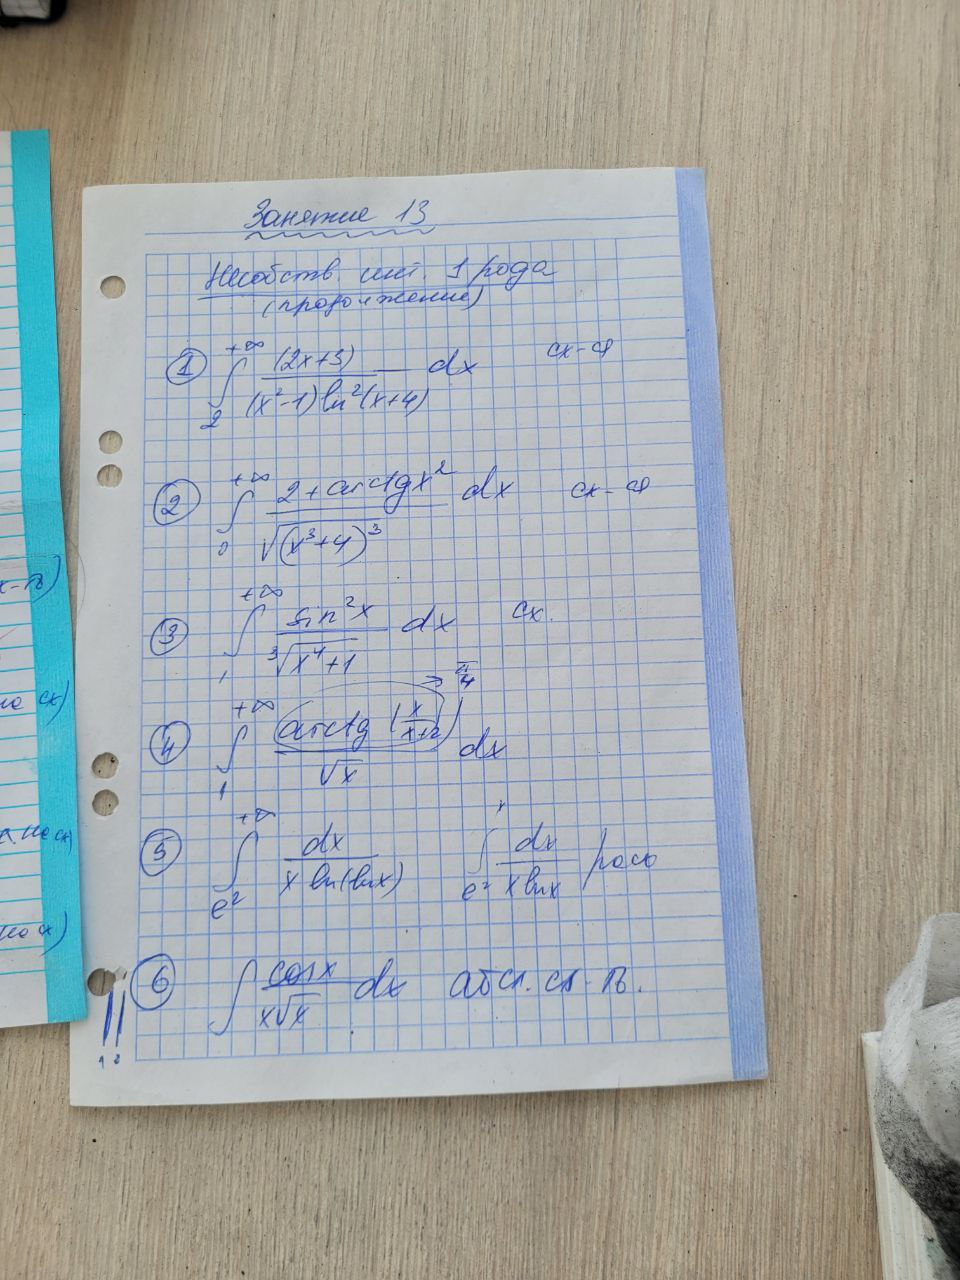 Занятие 13
Несобств. инт. 1 рода
(продолжение)
① ∫₂^{+∞} (2x+3) / ((x²-1) ln²(x+4)) dx сх-ся
② ∫₀^{+∞} (2+arctgx²) / √((x³+4)³) dx сх-ся
③ ∫₁^{+∞} sin²x / ∛(x⁴+1) dx сх.
④ ∫₁^{+∞} arctg (x/(x+2)) / √x dx → π/4
⑤ ∫_{e²}^{+∞} dx / (x ln(lnx)) ∫_{e²} dx / (x lnx) расх
⑥ ∫ cosx / (x√x) dx абсл. сх-ть.